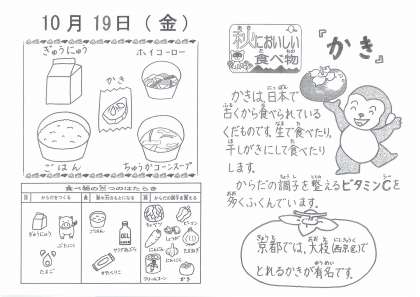 10月19日(金)
ぎゅうにゅう
ホイコーロー
かき
ごはん
ちゅうかコーンスープ
食べ物の三つのはたらき
からだをつくる
熱や力のもとになる
からだの調子を整える
ぎゅうにゅう
ごはん
ぶたにく
たまご
サラダあぶら
でんぷん
にんじん
しょうが
たまねぎ
にんにく
クリームコーン
かき
秋においしい
食べ物
『かき』
かきは、日本で
古くから食べられている
くだものです。生で食べたり、
干しがきにして食べたり
します。
からだの調子を整えるビタミンCを
多くふくんでいます。
京都では、大枝(西京区)で
とれるかきが有名です。